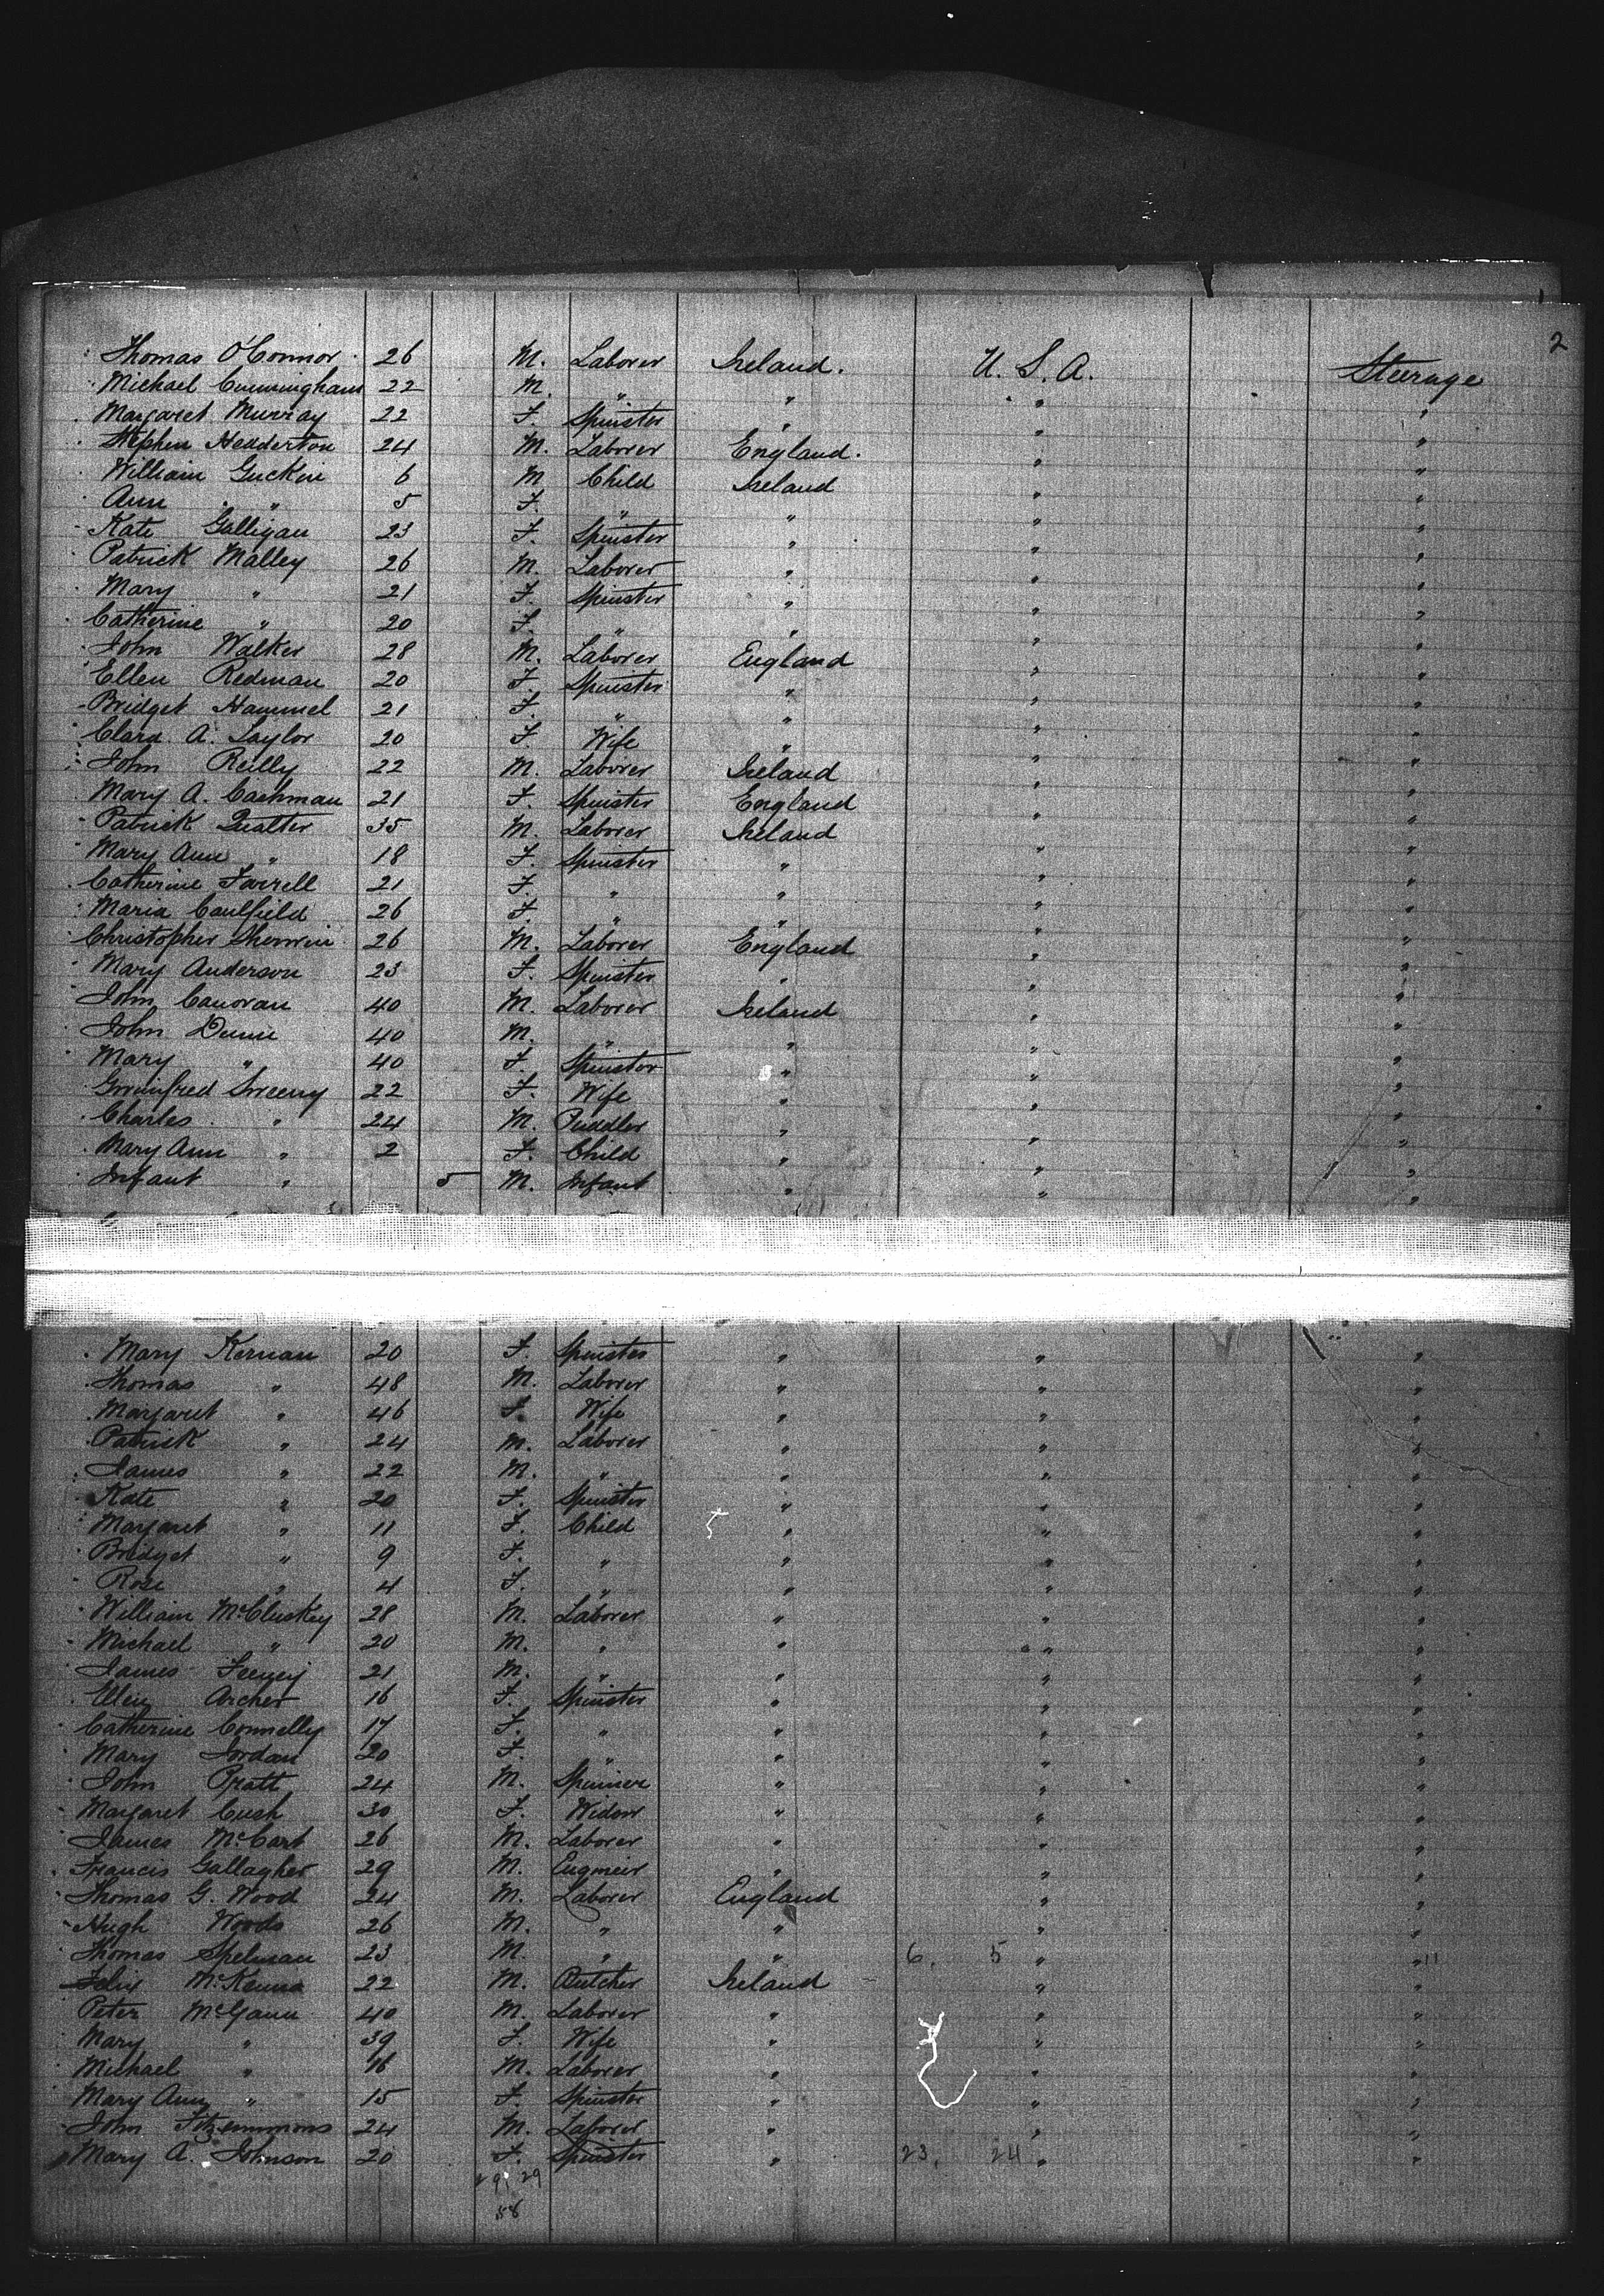 2
Thomas O'Connor 26 M. Laborer Ireland. U. S. A. Steerage
Michael Cunningham 22 M. " " " "
Margaret Murray 22 F. Spinster " " "
Stephen Hedderton 24 M. Laborer England. " "
William Guckin 6 M Child Ireland " "
Ann " 5 F. " " " "
Kate Galligan 23 F. Spinster " " "
Patrick Malley 26 M. Laborer " " "
Mary " 21 F. Spinster " " "
Catherine " 20 F. " " " "
John Walker 28 M. Laborer England " "
Ellen Redman 20 F. Spinster " " "
Bridget Hammel 21 F. " " " "
Clara A. Taylor 20 F. Wife " " "
John Reilly 22 M. Laborer Ireland " "
Mary A. Cashman 21 F. Spinster England " "
Patrick Qualter 35 M. Laborer Ireland " "
Mary Ann " 18 F. Spinster " " "
Catherine Farrell 21 F. " " " "
Maria Caulfield 26 F. " " " "
Christopher Sherwin 26 M. Laborer England " "
Mary Anderson 23 F. Spinster " " "
John Canovan 40 M. Laborer Ireland " "
John Dunn 40 M. " " " "
Mary " 40 F. Spinster " " "
Sweeny 22 F. Wife " " "
Charles " 24 M. Puddler " " "
Mary Ann " 2 F. Child " " "
Infant " 5 M. Infant " " "
Mary Kernan 20 F. Spinster " " "
Thomas " 48 M. Laborer " " "
Margaret " 46 F. Wife " " "
Patrick " 24 M. Laborer " " "
James " 22 M. " " " "
Kate " 20 F. Spinster " " "
Margaret " 11 F. Child " " "
Bridget " 9 F. " " " "
Rose " 4 F. " " " "
William McCluskey 28 M. Laborer " " "
Michael " 20 M. " " " "
James Feeney 21 M. " " " "
Ellen Archer 16 F. Spinster " " "
Catherine Connelly 17 F. " " " "
Mary Jordan 20 F. " " " "
John Pratt 24 M. Spinner " " "
Margaret Cush 30 F. Widow " " "
James McCart 26 M. Laborer " " "
Francis Gallagher 29 M. Engineir " " "
Thomas G. Wood 24 M. Laborer England " "
Hugh Woods 26 M. " " " "
Thomas Spelman 23 M. " " 6. 5 " " 11
Felix McKenna 22 M. Butcher Ireland " "
Peter McGann 40 M. Laborer " " "
Mary " 39 F. Wife " " "
Michael " 16 M. Laborer " " "
Mary Ann " 15 F. Spinster " " "
John Fitzemmons 24 M. Laborer " " "
Mary A. Johnson 20 F. Spinster " 23. 24 " "
29 29
58